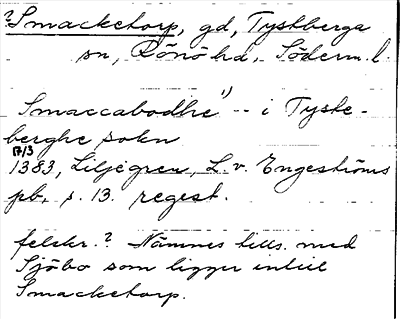 ?Smacketorp, gd, Tystberga
sn, Rönö hd, Söderm. l.
Smaccabodhe 1) -- i Tyste-
berghe sokn
17/3
1383, Liljegren, L. v. Engeströms
pb, s. 13. regest.
felskr.? Nämnes tills. med
Sjöbo som ligger intill
Smacketorp.